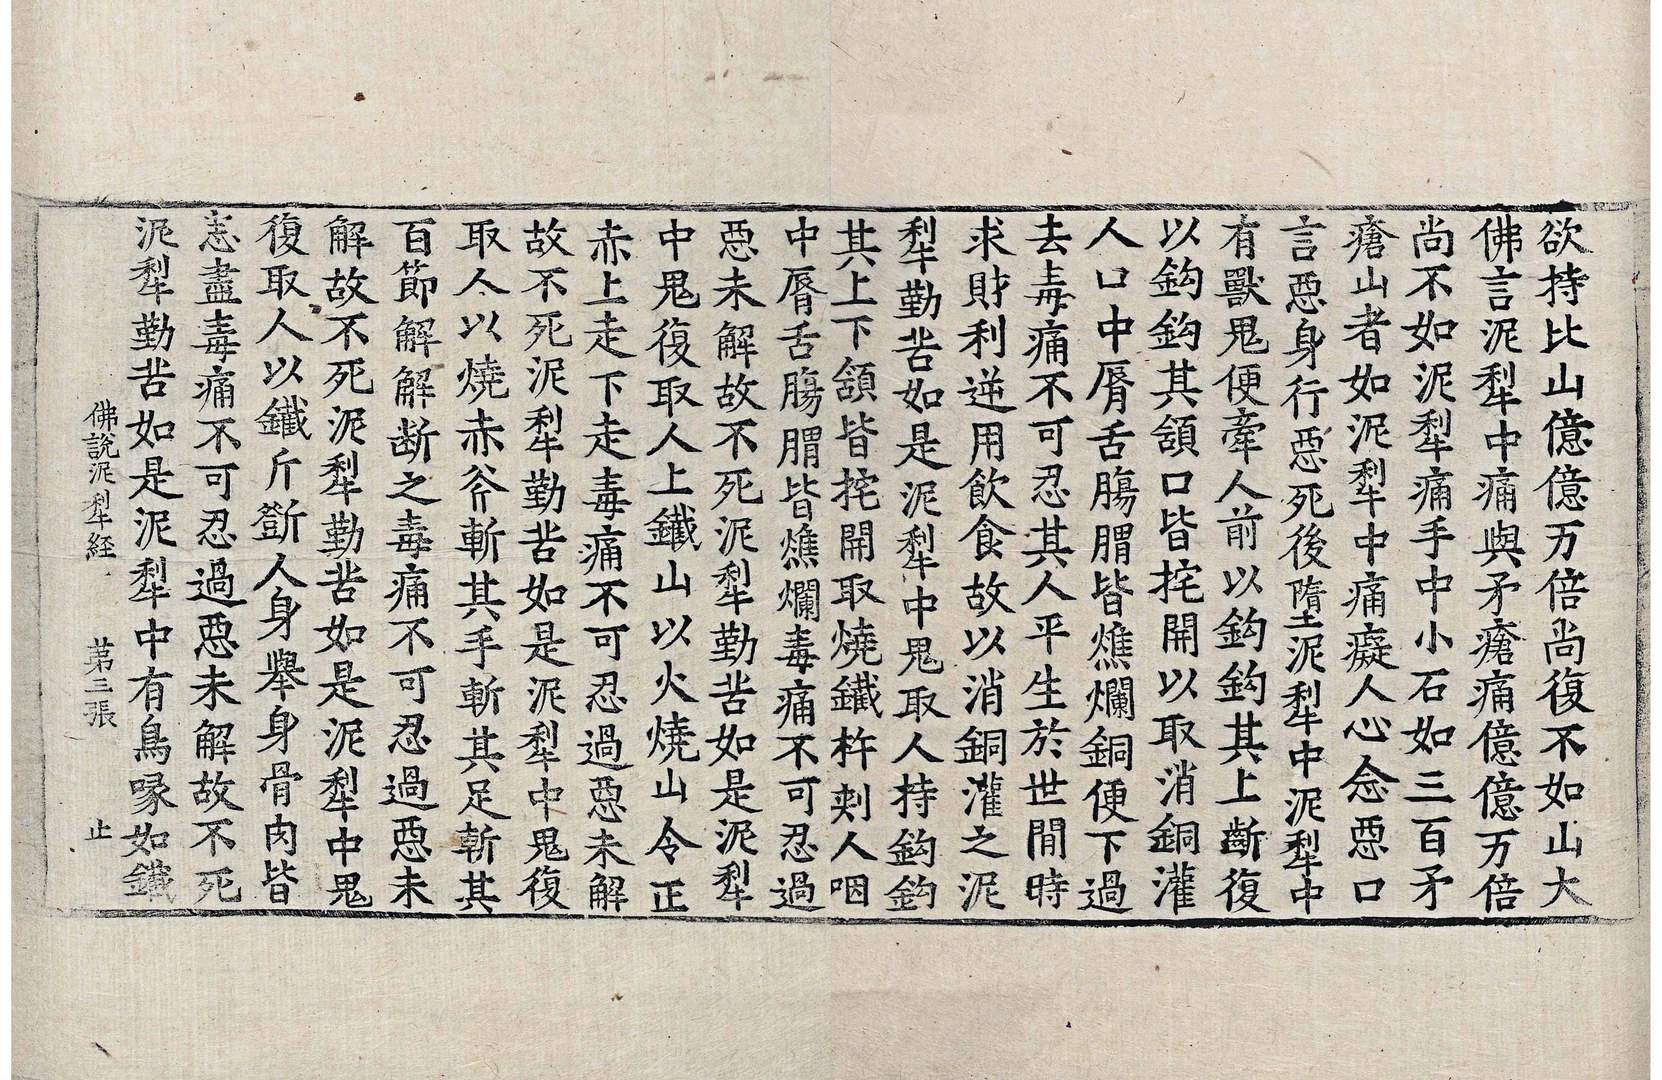 欲持比山億億万倍尚復不如山大
佛言泥犁中痛與矛瘡痛億億万倍
尚不如泥犁痛手中小石如三百矛
瘡山者如泥犁中痛癡人心念惡口
言惡身行惡死後墮泥犁中泥犁中
有獸鬼便牽人前以鈎鈎其上齗復
以鈎鈎其頷口皆挓開以取消銅灌
人口中脣舌腸腨皆燋爛銅便下過
去毒痛不可忍其人平生於世閒時
求財利逆用飲食故以消銅灌之泥
犁勤苦如是泥犁中鬼取人持鈎鈎
其上下頷皆挓開取燒鐵杵刾人咽
中脣舌腸腨皆燋爛毒痛不可忍過
惡未解故不死泥犁勤苦如是泥犁
中鬼復取人上鐵山以火燒山令正
赤上走下走毒痛不可忍過惡未解
故不死泥犁勤苦如是泥犁中鬼復
取人以燒赤斧斬其手斬其足斬其
百節解解断之毒痛不可忍過惡未
解故不死泥犁勤苦如是泥犁中鬼
復取人以鐵斤斵人身舉身骨肉皆
悉盡毒痛不可忍過惡未解故不死
佛說泥犁経 第三張 止
泥犁勤苦如是泥犁中有鳥喙如鐵